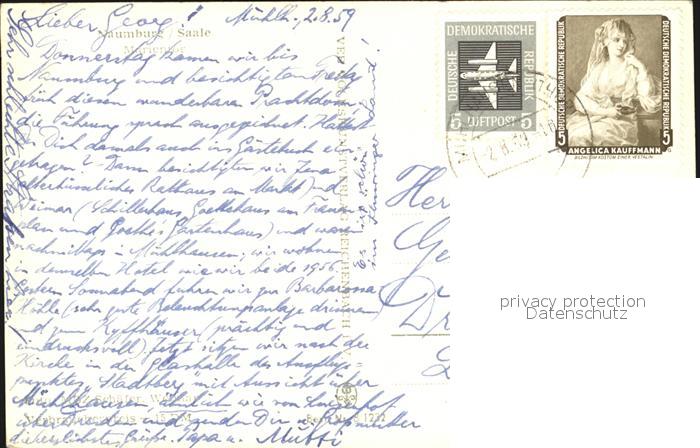 Lieber Georg! Mühlh. 2.8.59
Naumburg / Saale
Donnerstag kamen wir bis
Naumburg und besichtigten Freitag
früh diesen wunderbaren Prachtdom
die Führung sprach ausgezeichnet. Hattest
Dich damals auch ins Gästebuch ein-
getragen? Dann besichtigten wir Jena
altertümliches Rathaus am Markt) und
Weimar (Schillerhaus Goethehaus am Frauen-
plan und Goethe's Gartenhaus) und waren
nachmittags in Mühlhausen; wir wohnen
in demselben Hotel wie wir beide 1956.
Gestern Sonnabend fuhren wir zur Barbarossa
Höhle (sehr gute Beleuchtungsanlage drinnen
und zum Kyffhäuser (prächtig und
eindrucksvoll) Jetzt sitzen wir nach der
Kirche in der Glashalle des Ausflugs-
punktes "Stadtberg" mit Aussicht über
Mühlhausen, ähnlich wie von
und senden Dir u. Großmutter
die herzlichsten Grüsse. Papa u. Mutti
Es ist schön
im Thüringer Land!
DEUTSCHE DEMOKRATISCHE REPUBLIK
5 LUFTPOST 5
DEUTSCHE DEMOKRATISCHE REPUBLIK
DEUTSCHE DEMOKRATISCHE REPUBLIK
5 5
ANGELICA KAUFFMANN
BILDNIS IM KOSTÜM EINER VESTALIN
2.8.59
privacy protection
Datenschutz